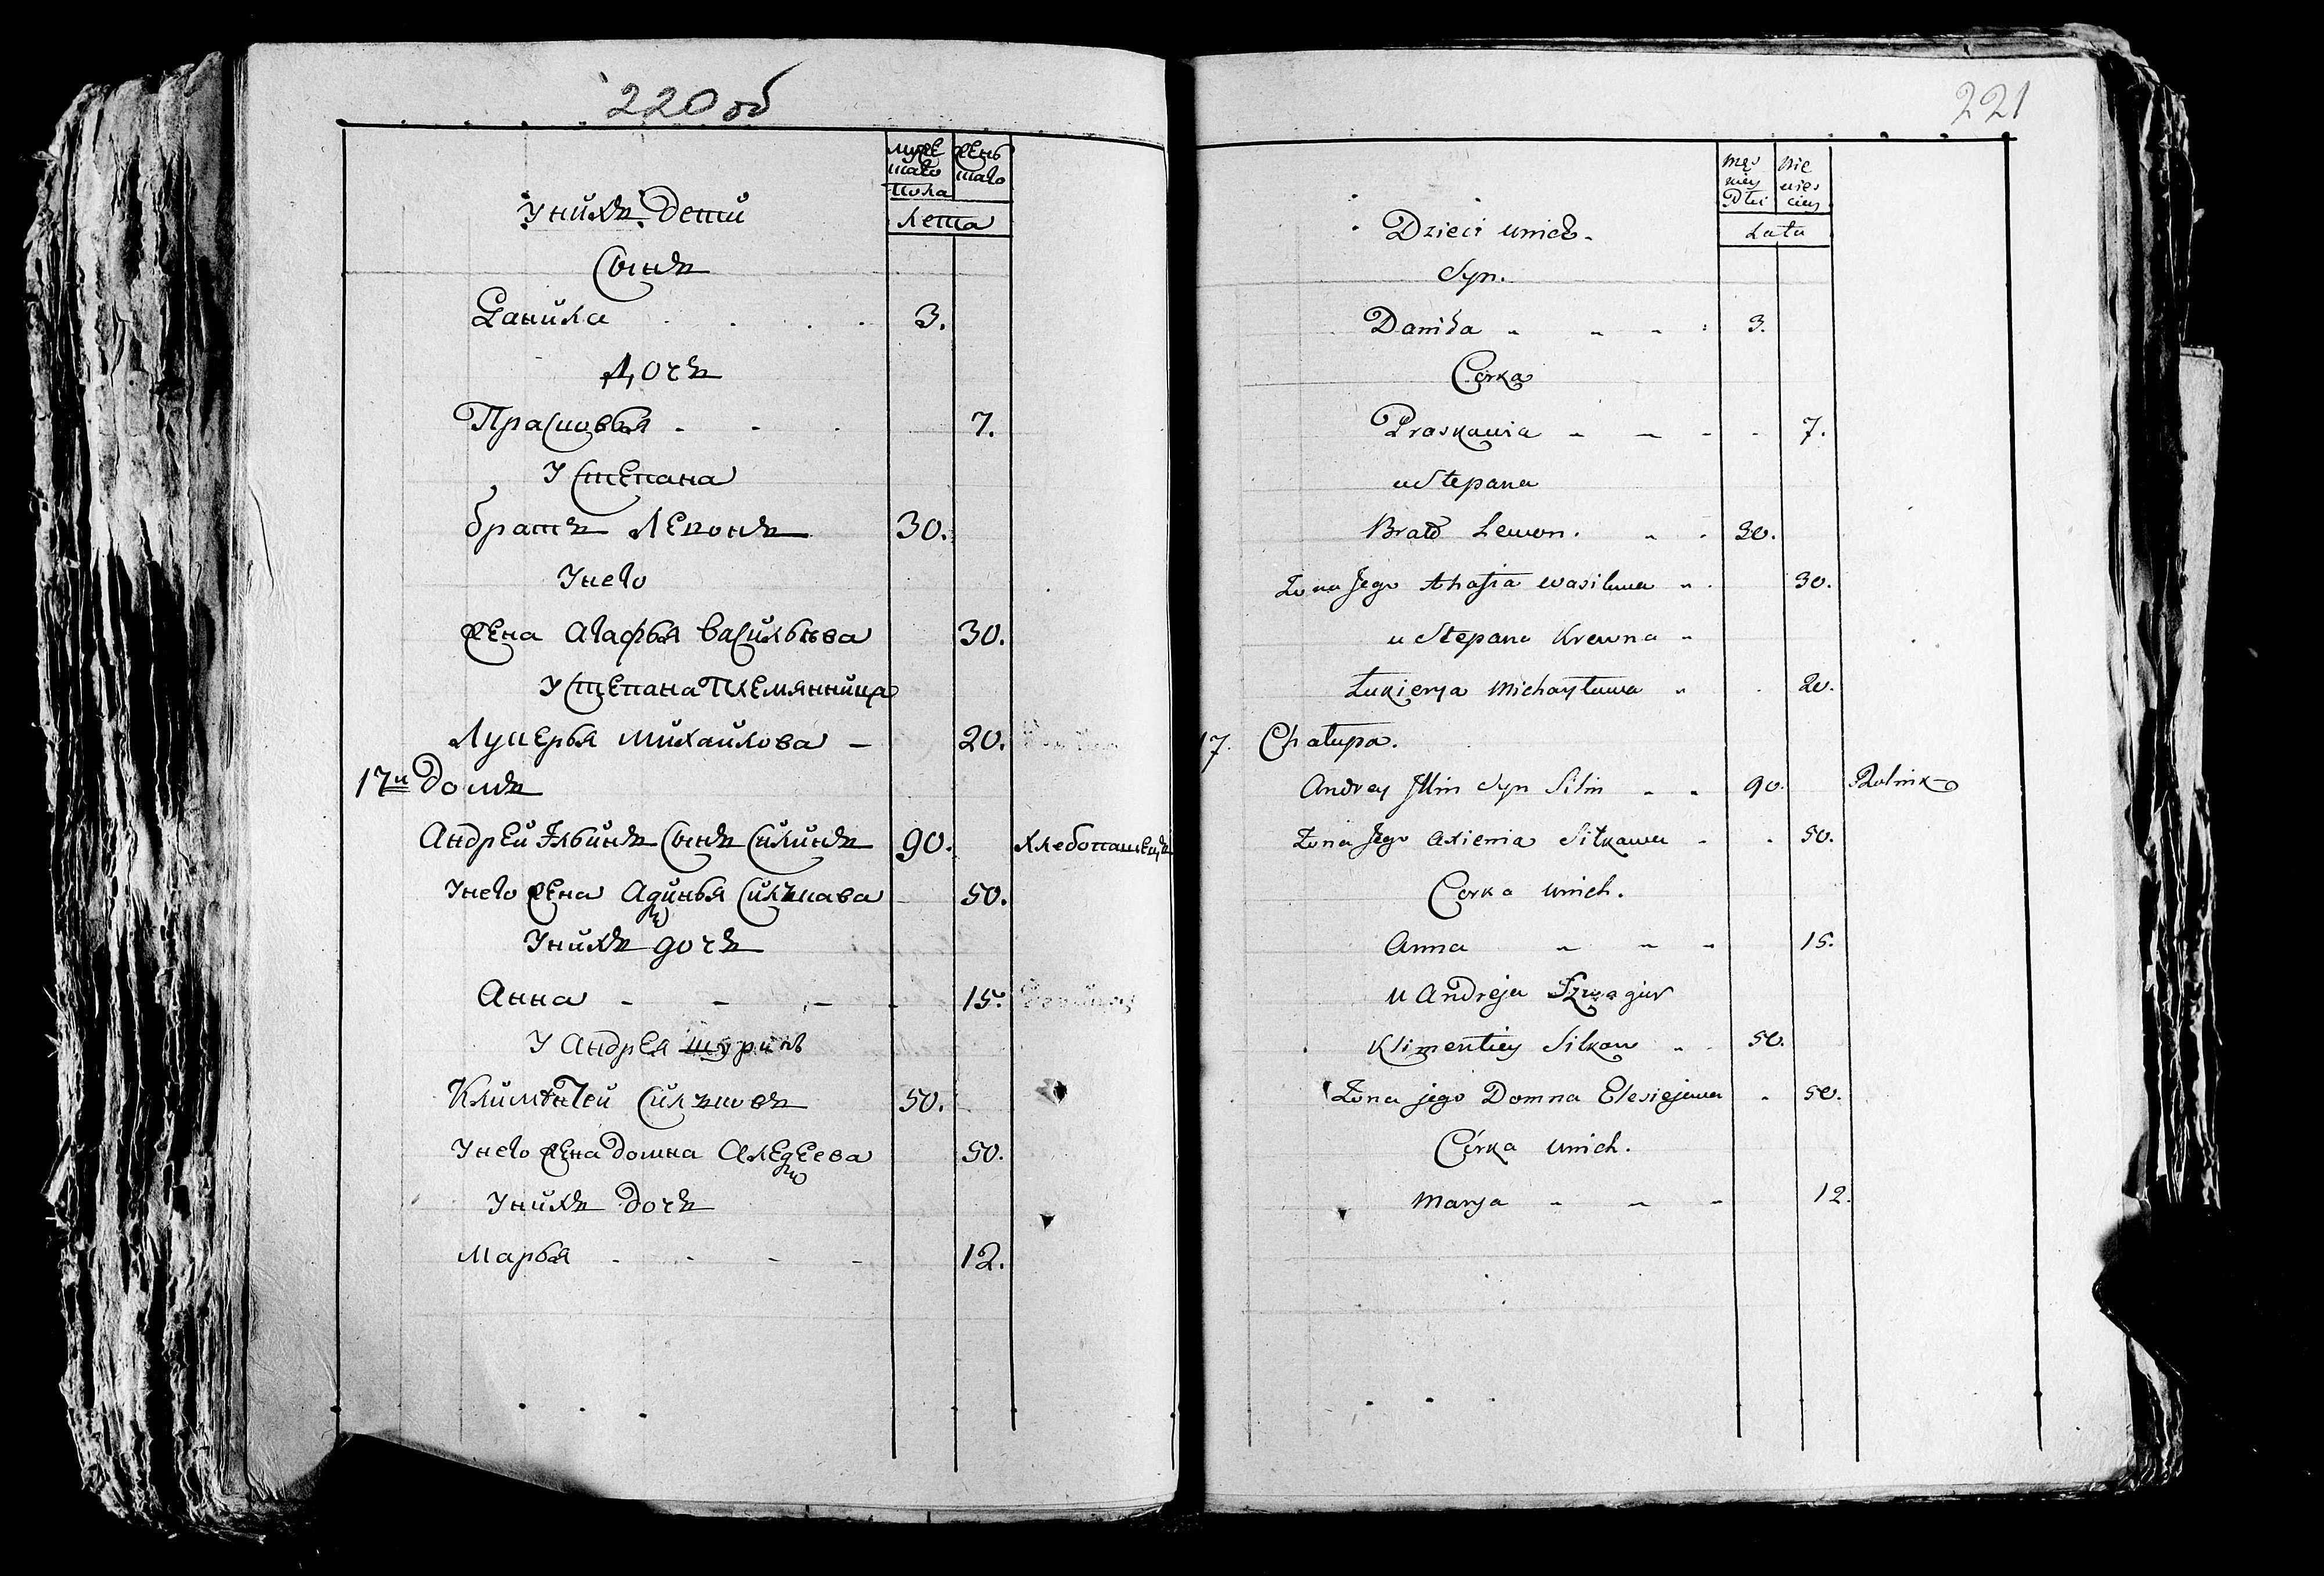 220 об
муже
шаго
пола
жень
шаго
Лета
У нихъ Дети
Сынъ
Данила 3.
Дочь
Прасковья 7.
У Степана
братъ Левонъ 30.
У него
жена Агафья Васильева 30.
У Степана племянница
Лукерья Михайлова 20.
17й Домъ
Андрей Ильинъ Сынъ Силинъ 90. Хлебопашецъ
У него жена Аксинья Силкава 50.
У нихъ дочь
Анна 15.
У Андрея шуринъ
Климентей Силковъ 50.
У него жена Домна Алексеева 50.
У нихъ Дочь
Марья 12.
221
Lata
Dzieci unich.
Syn.
Daniła 3.
Corka
Praskawia 7.
u Stepana
Brat Lewon. 30.
Żona Jego Ahafia wasilewa 30.
u Stepana Krewna
Łukierja Michayłuwa 20.
17. Chałupa.
Andrey Illin Syn Silin 90. Rolnik
Żona Jego Axienia Siłkawa 50.
Corka unich.
Anna 15.
u Andreja Szwagier
Klimentiey Silkaw 50.
Żona jego Domna Elesiejewa 50.
Córka unich.
Marja 12.